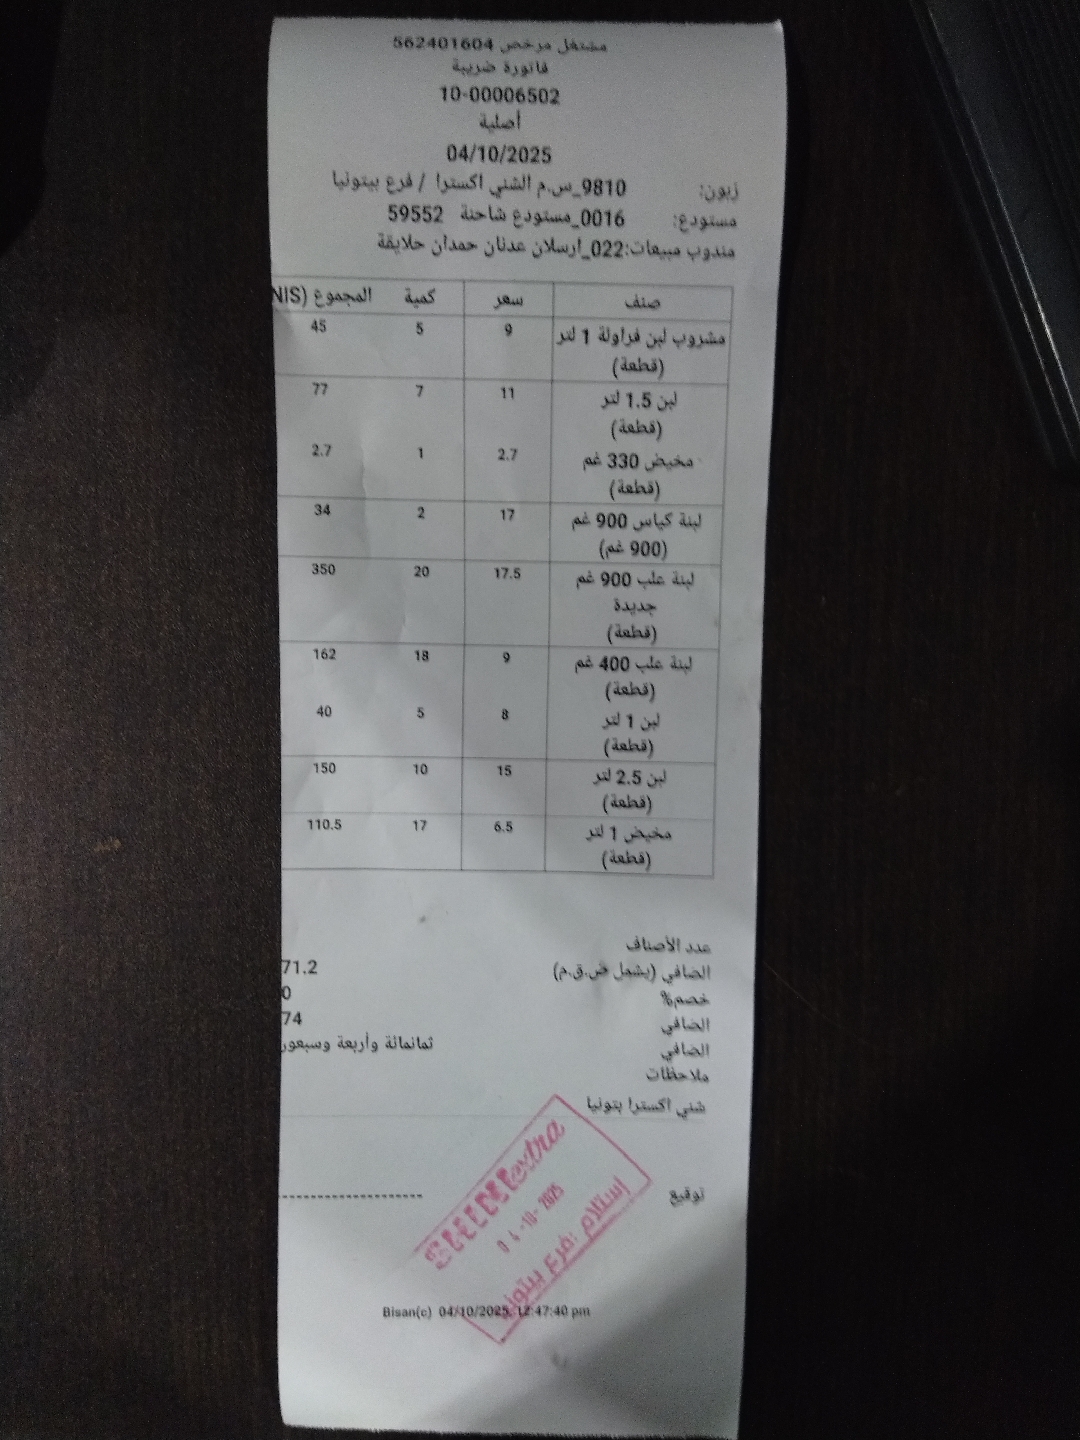 مشتغل مرخص 562401604
فاتورة ضريبة
10-00006502
أصلية
04/10/2025
زبون: 9810_س.م الشني اكسترا / فرع بيتونيا
مستودع: 0016_مستودع شاحنة 59552
مندوب مبيعات:022_ارسلان عدنان حمدان حلايقة
صنف سعر كمية المجموع (NIS
مشروب لبن فراولة 1 لتر 9 5 45
(قطعة)
لبن 1.5 لتر 11 7 77
(قطعة)
مخيض 330 غم 2.7 1 2.7
(قطعة)
لبنة كياس 900 غم 17 2 34
(900 غم)
لبنة علب 900 غم 17.5 20 350
جديدة
(قطعة)
لبنة علب 400 غم 9 18 162
(قطعة)
لبن 1 لتر 8 5 40
(قطعة)
لبن 2.5 لتر 15 10 150
(قطعة)
مخيض 1 لتر 6.5 17 110.5
(قطعة)
عدد الأصناف
الصافي (يشمل ض.ق.م) 71.2
خصم% 0
الصافي 74
الصافي ثمانمائة وأربعة وسبعون
ملاحظات
شني اكسترا بتونيا
توقيع
extra
04-10-2025
إستلام :فرع بيتونيا
Bisan(c) 04/10/2025 12:47:40 pm